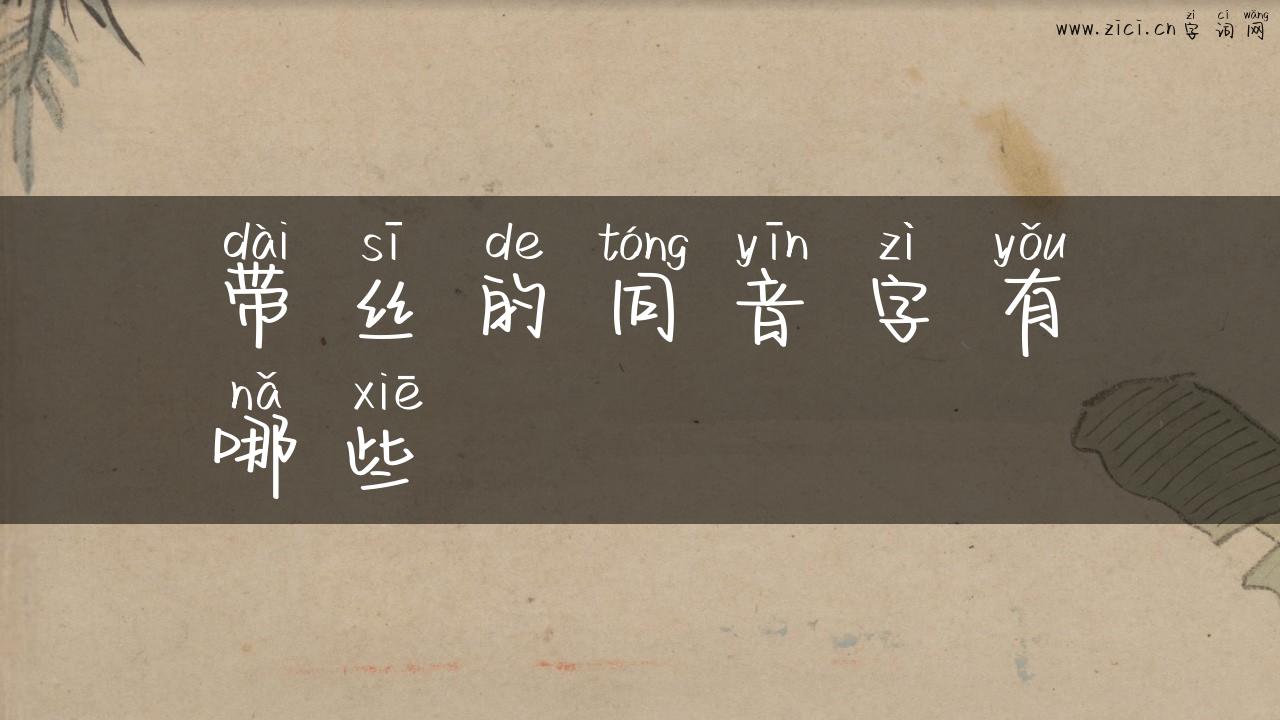 zì cí wǎng
www.zici.cn 字词网
dài sī de tóng yīn zì yǒu
带丝的同音字有
nǎ xiē
哪些